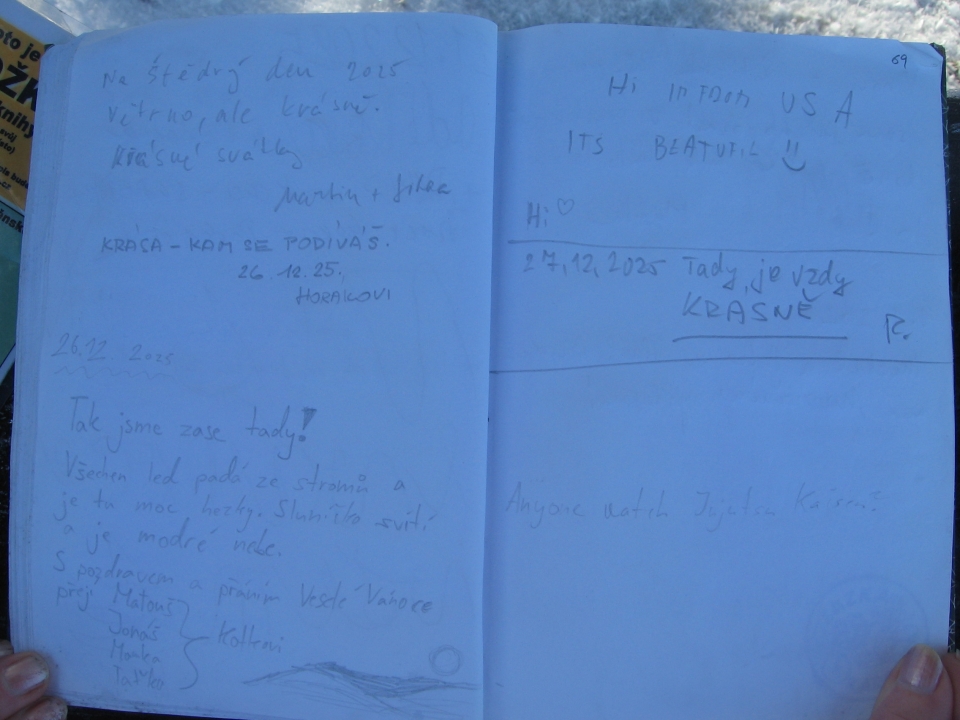 Na Štědrý den 2025
větrno, ale krásně.
Krásné svátky
Martin + Jitka
KRÁSA – KAM SE PODÍVÁŠ.
26.12.25.,
HORÁKOVI
26.12. 2025
Tak jsme zase tady!
Všechen led padá ze stromů a
je tu moc hezky. Sluníčko svítí
a je modré nebe.
S pozdravem a přáním Veselé Vánoce
přejí Matouš
Jonáš
Monka
Kotkovi
69
Hi im from USA
ITS BEATUFIL
Hi ♡
27.12.2025 Tady je vzdy
KRÁSNĚ
R.
Anyone watch Jujutsu Kaisen?
oto je
knihy